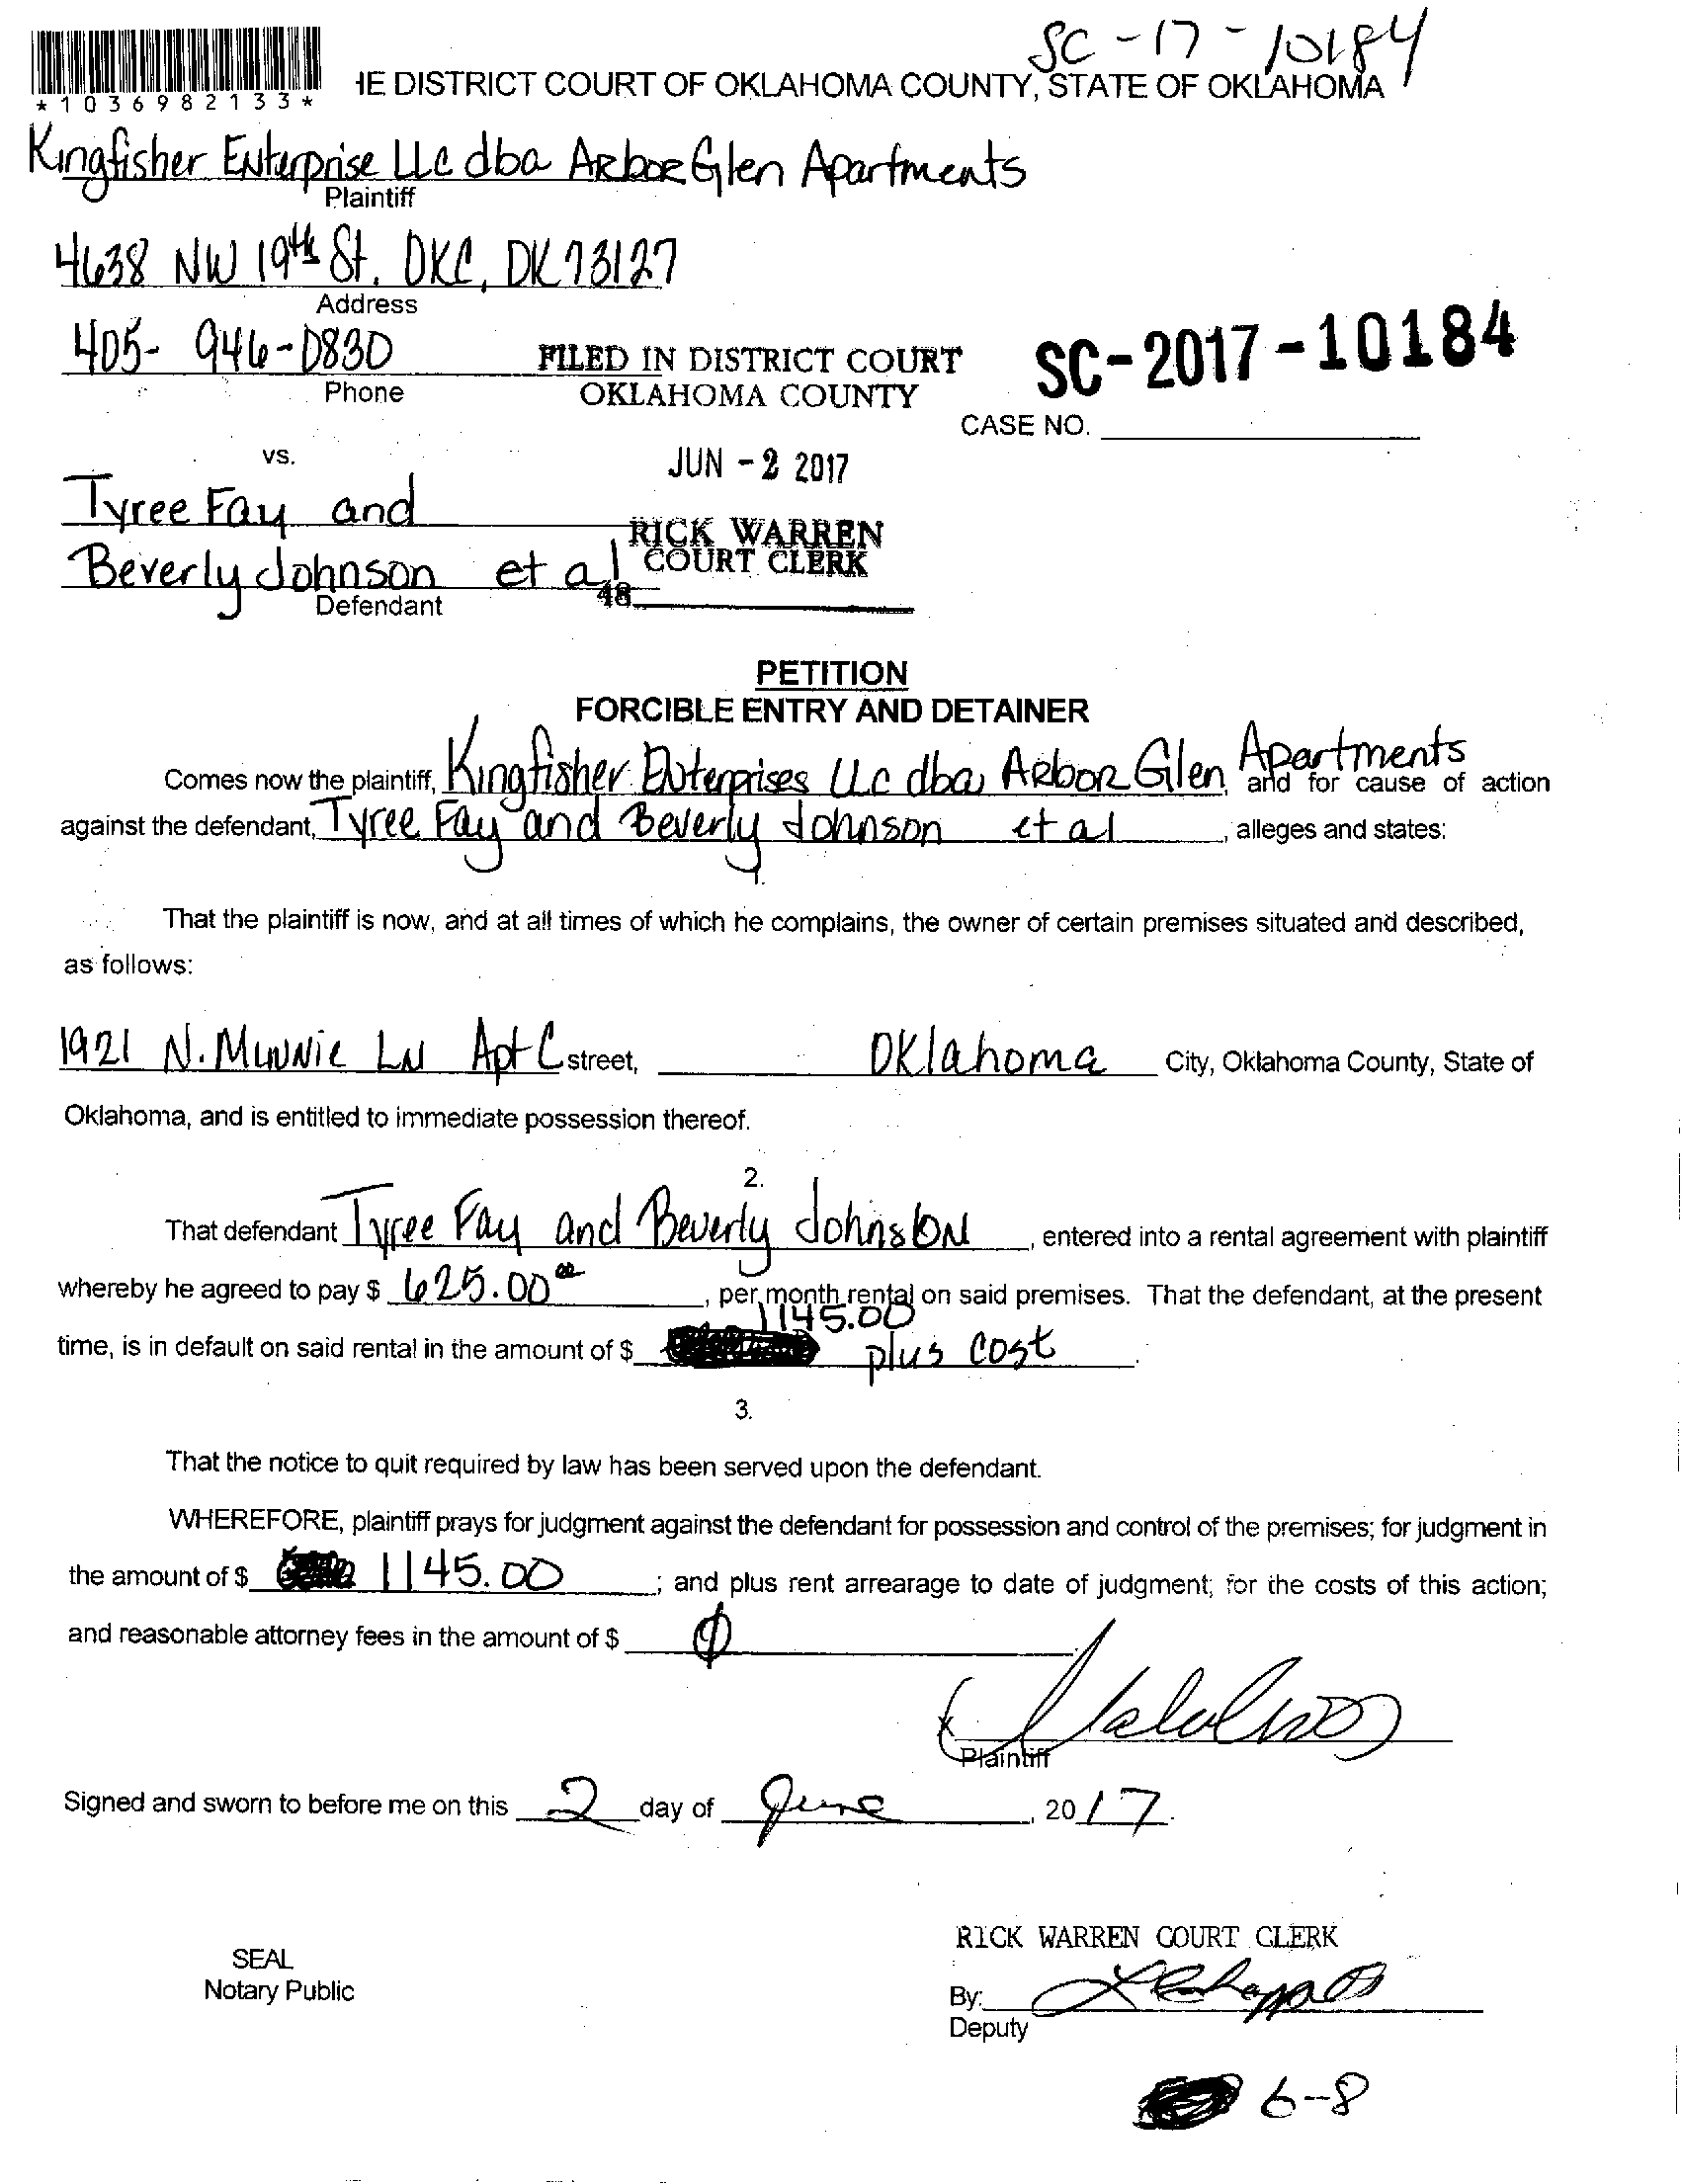 SC-17-10184
*1036982133*
IE DISTRICT COURT OF OKLAHOMA COUNTY, STATE OF OKLAHOMA
Kingfisher Enterprise LLC dba Arbor Glen Apartments
Plaintiff
4638 NW 19th St. OKC, OK 73127
Address
405-946-0830
Phone
FILED IN DISTRICT COURT
OKLAHOMA COUNTY
SC-2017-10184
CASE NO.
vs.
JUN -2 2017
Tyree Fay and
RICK WARREN
COURT CLERK
Beverly Johnson et al
48
Defendant
PETITION
FORCIBLE ENTRY AND DETAINER
Comes now the plaintiff, Kingfisher Enterprises LLC dba Arbor Glen Apartments, and for cause of action
against the defendant, Tyree Fay and Beverly Johnson et al, alleges and states:
1.
That the plaintiff is now, and at all times of which he complains, the owner of certain premises situated and described,
as follows:
1921 N. Minnie Ln Apt C street, Oklahoma City, Oklahoma County, State of
Oklahoma, and is entitled to immediate possession thereof.
2.
That defendant Tyree Fay and Beverly Johnson, entered into a rental agreement with plaintiff
whereby he agreed to pay $ 625.00 00, per month rental on said premises. That the defendant, at the present
time, is in default on said rental in the amount of $ 1145.00 plus cost.
3.
That the notice to quit required by law has been served upon the defendant.
WHEREFORE, plaintiff prays for judgment against the defendant for possession and control of the premises; for judgment in
the amount of $ 1145.00; and plus rent arrearage to date of judgment; for the costs of this action;
and reasonable attorney fees in the amount of $ 0
X
Plaintiff
Signed and sworn to before me on this 2 day of June, 2017.
RICK WARREN COURT CLERK
SEAL
Notary Public
By:
Deputy
6-8